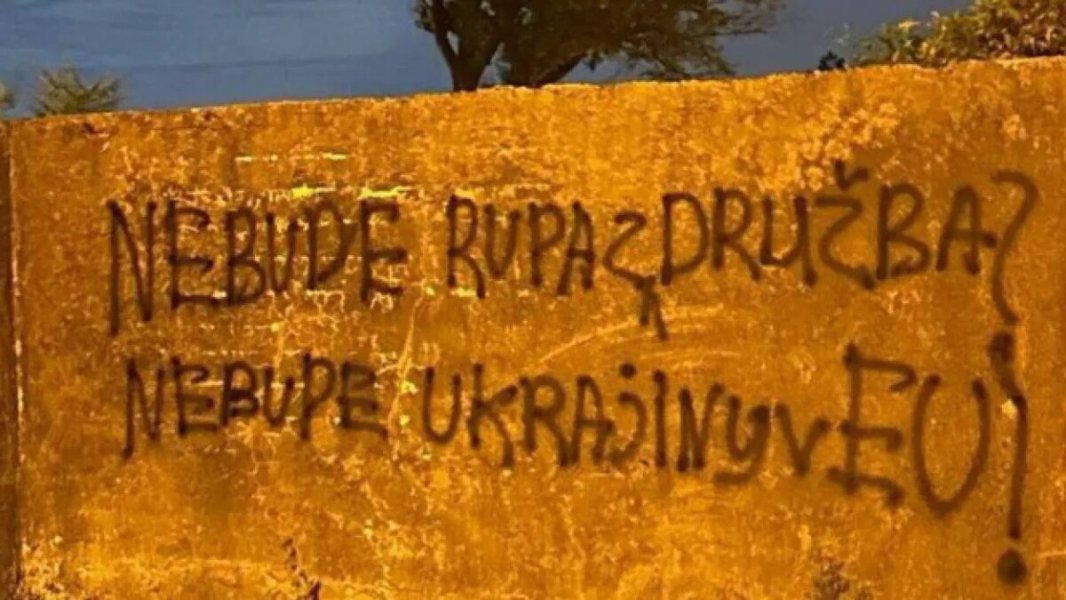 NEBUDE RUPA Z DRUŽBA?
NEBUPE UKRAJINY V EU!